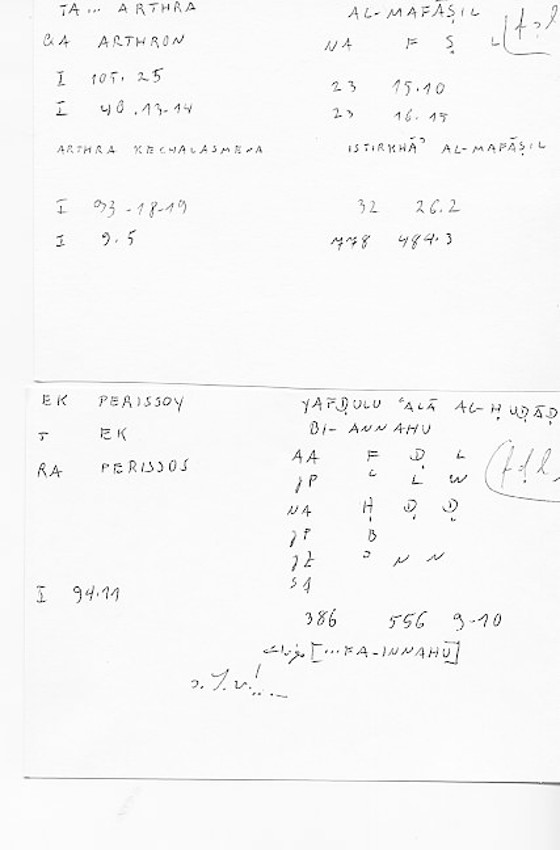 TA... ARTHRA AL-MAFĀṢIL
GA ARTHRON NA F Ṣ L
I 105.25 23 15.10
I 40.13-14 23 16.15
ARTHRA KECHALASMENA ISTIRKHĀʾ AL-MAFĀṢIL
I 93-18-19 32 26.2
I 9.5 778 484.3
EK PERISSOY YAFḌULU ʿALĀ AL-ḤUḌĀḌ
J EK BI-ANNAHU
RA PERISSOS AA F Ḍ L
JP ʿ L W
NA Ḥ Ḍ Ḍ
JP B
JZ ʾ N N
SA
I 94.11
386 556 9-10
[...FA-INNAHU]